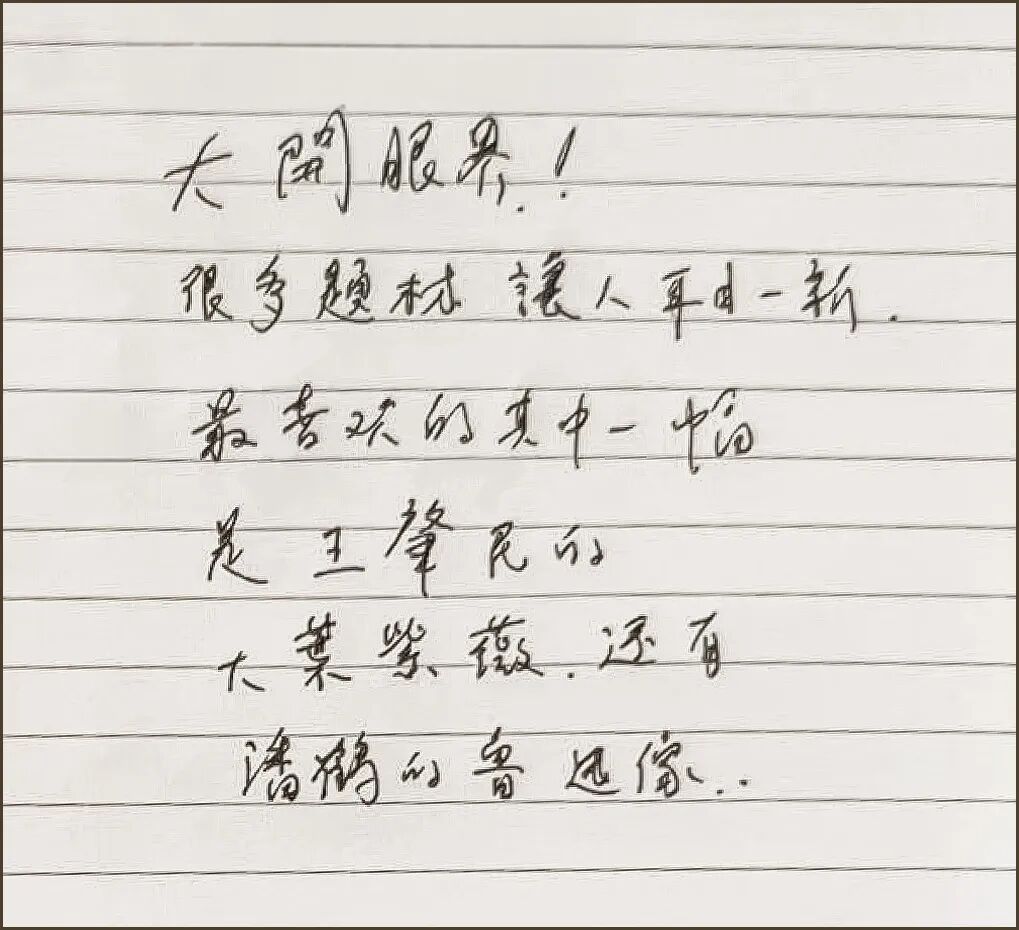 大開眼界.!
很多題材 讓人耳目一新.
最喜欢的其中一幅
是王肇民的
大葉紫薇.还有
潘鶴的魯迅像..